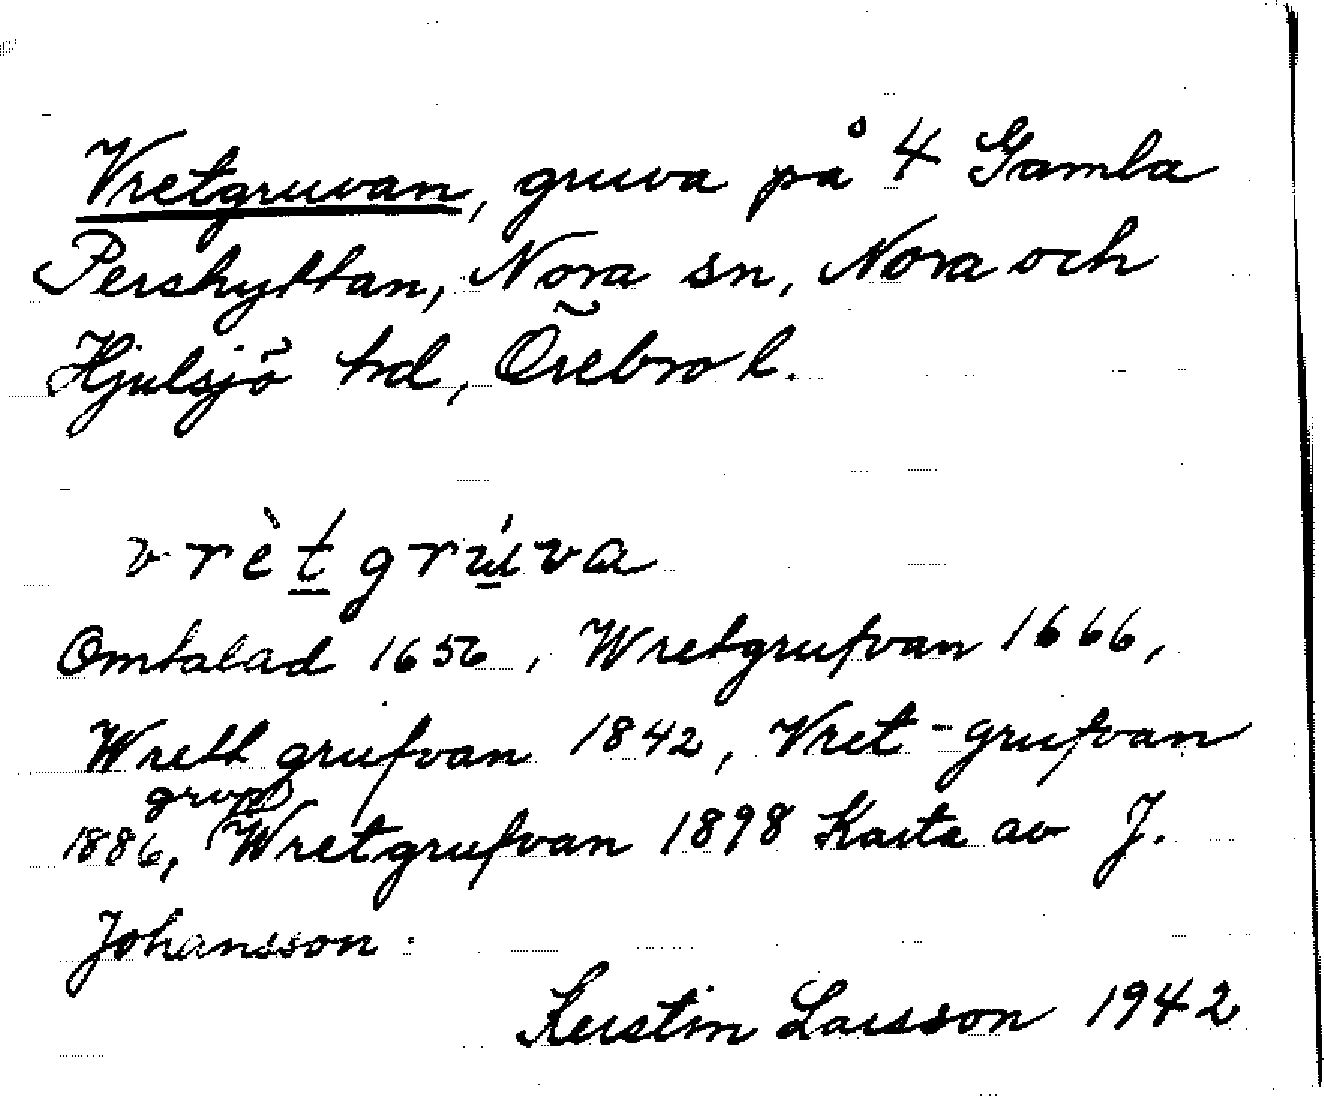 Vretgruvan, gruva på 4 Gamla
Pershyttan, Nora sn, Nora och
Hjulsjö hd, Örebro l.
vrètgrúva
Omtalad 1656, Wretgrufvan 1666,
Wrett grufvan 1842, Vret-grufvan
1886, (grupp) Wretgrufvan 1898 Karta av J.
Johansson.
Kerstin Larsson 1942